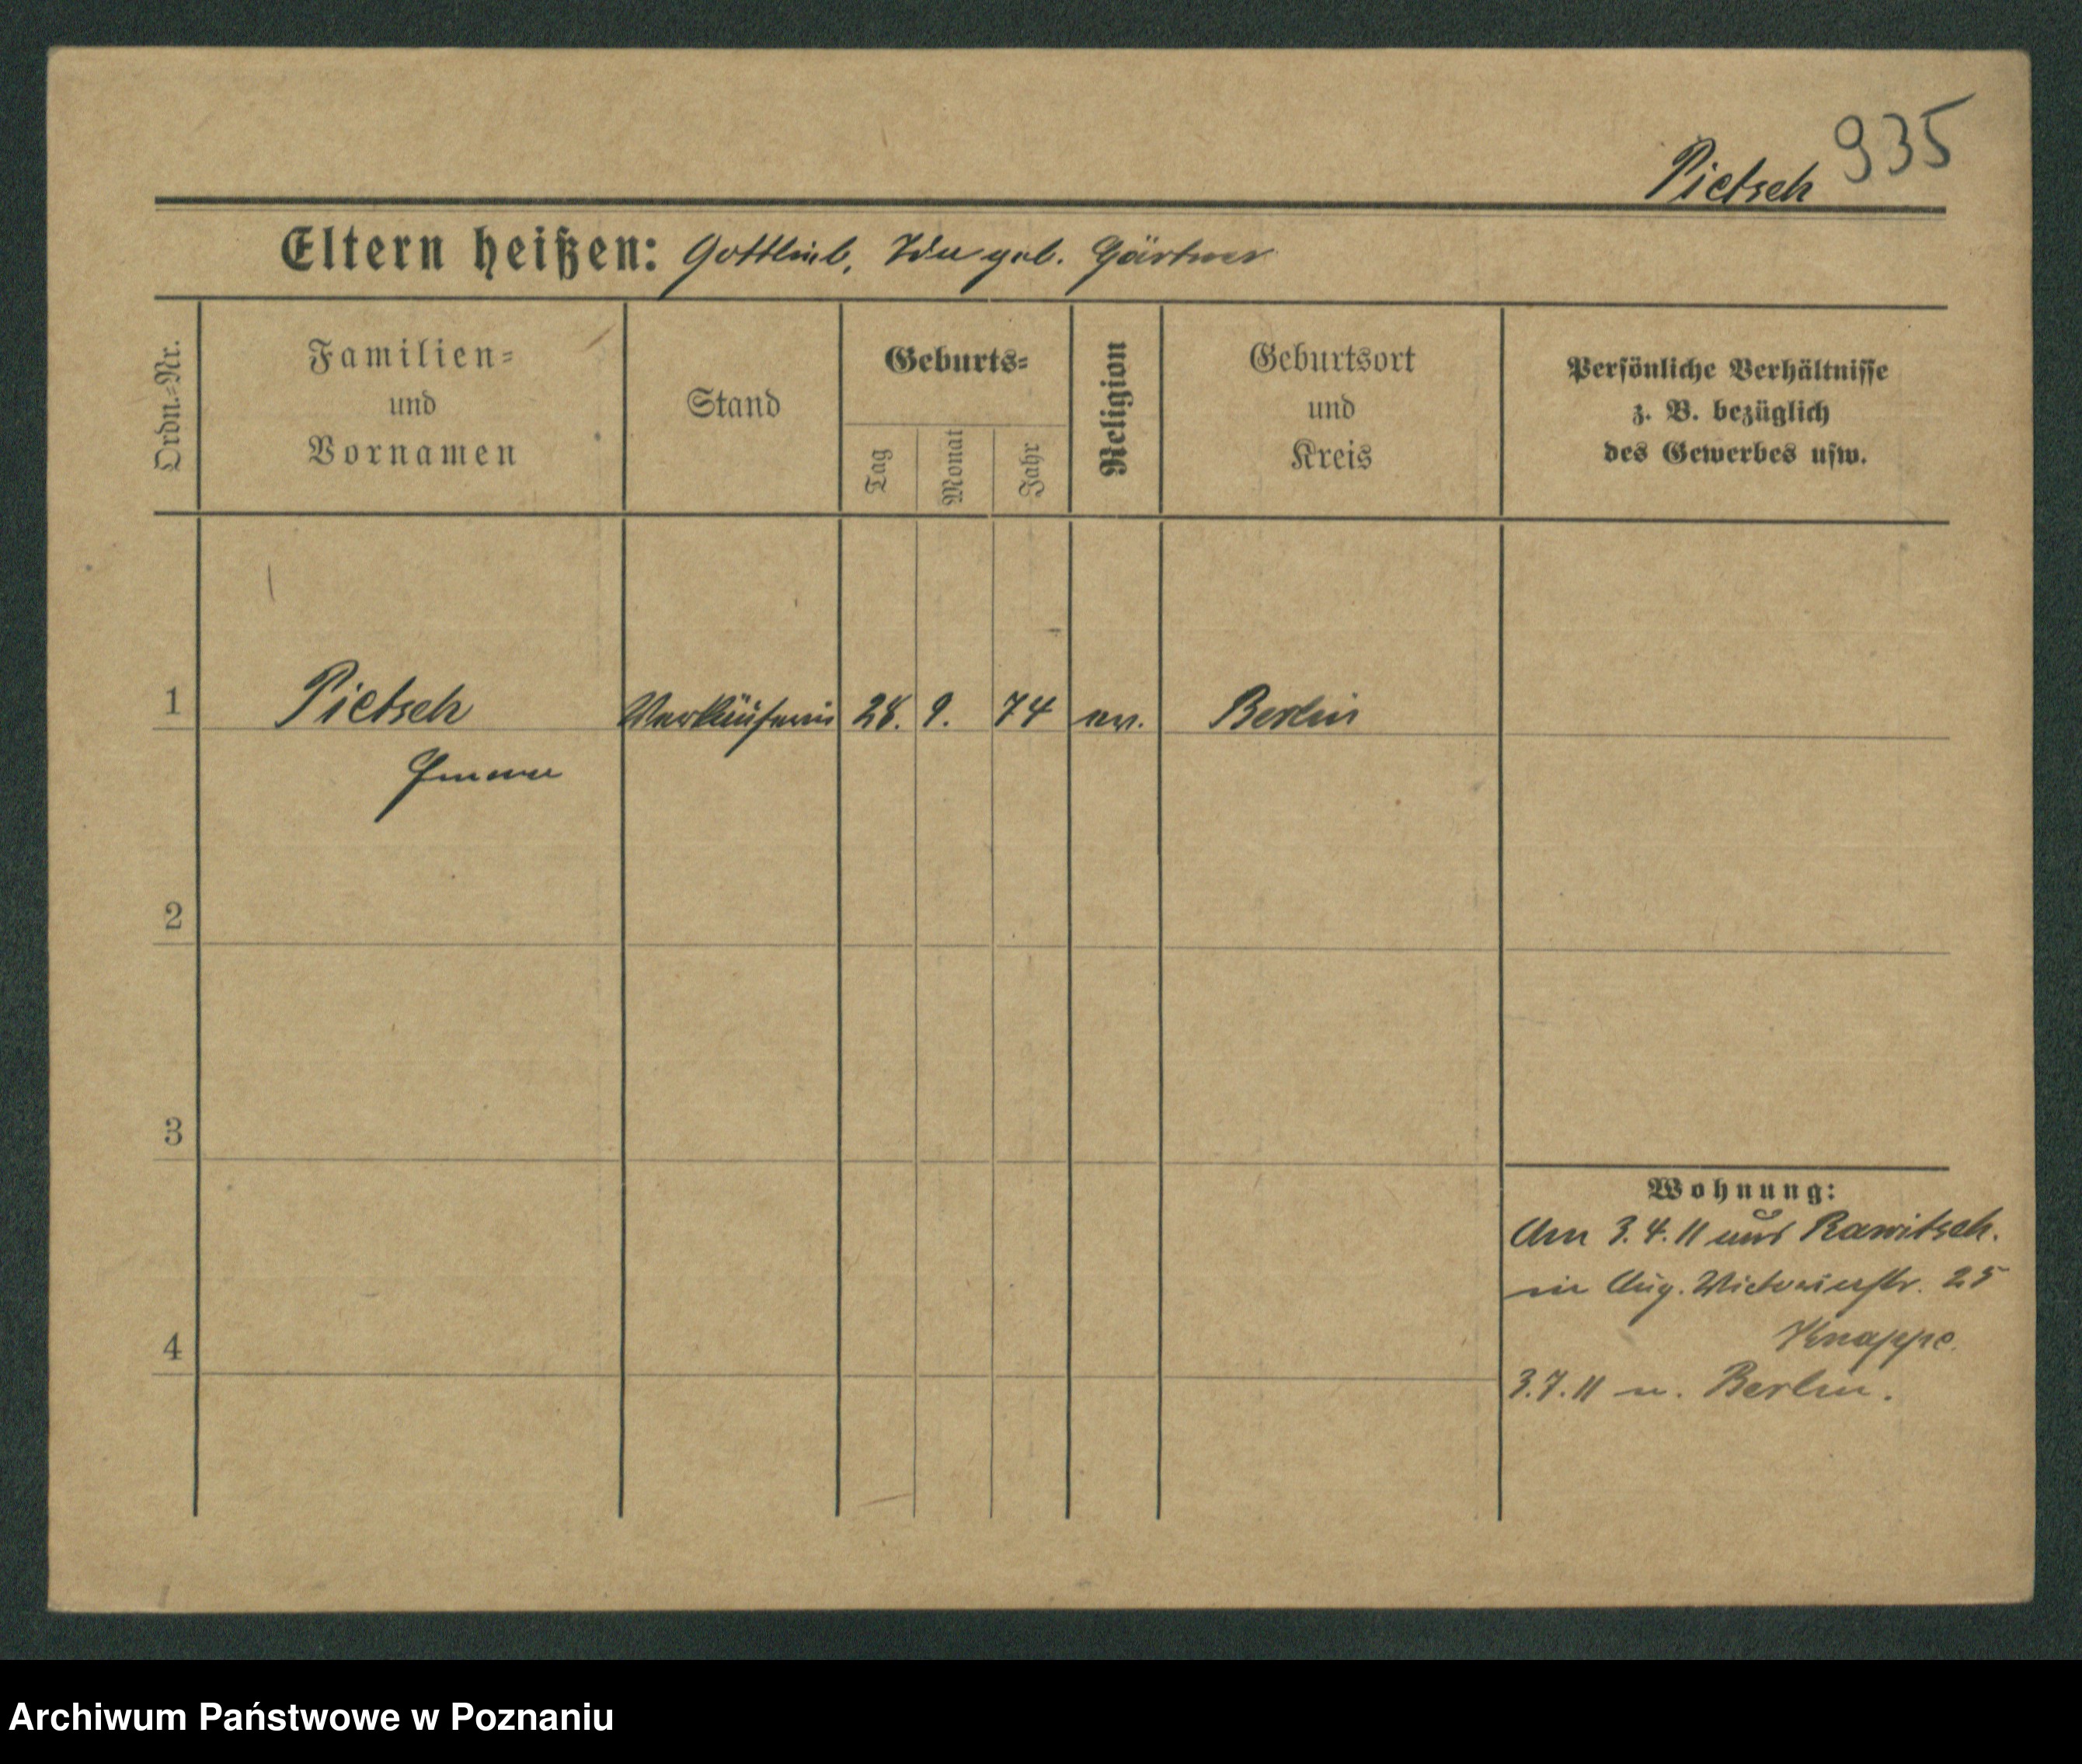 935
Pietsch
Eltern heißen: Gottlieb, Ida geb. Gärtner
Ordn.-Nr.
Familien-
und
Vornamen
Stand
Geburts-
Tag
Monat
Jahr
Religion
Geburtsort
und
Kreis
Persönliche Verhältnisse
z. B. bezüglich
des Gewerbes usw.
1 Pietsch Verkäuferin 28. 9. 74 ev. Berlin
Emma
2
3
4
Wohnung:
Am 3.4.11 aus Rawitsch.
in Aug. Victoriastr. 25
Knappe.
3.7.11 n. Berlin.
Archiwum Państwowe w Poznaniu